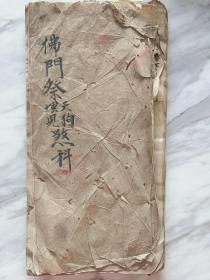 佛門祭天狗煞科